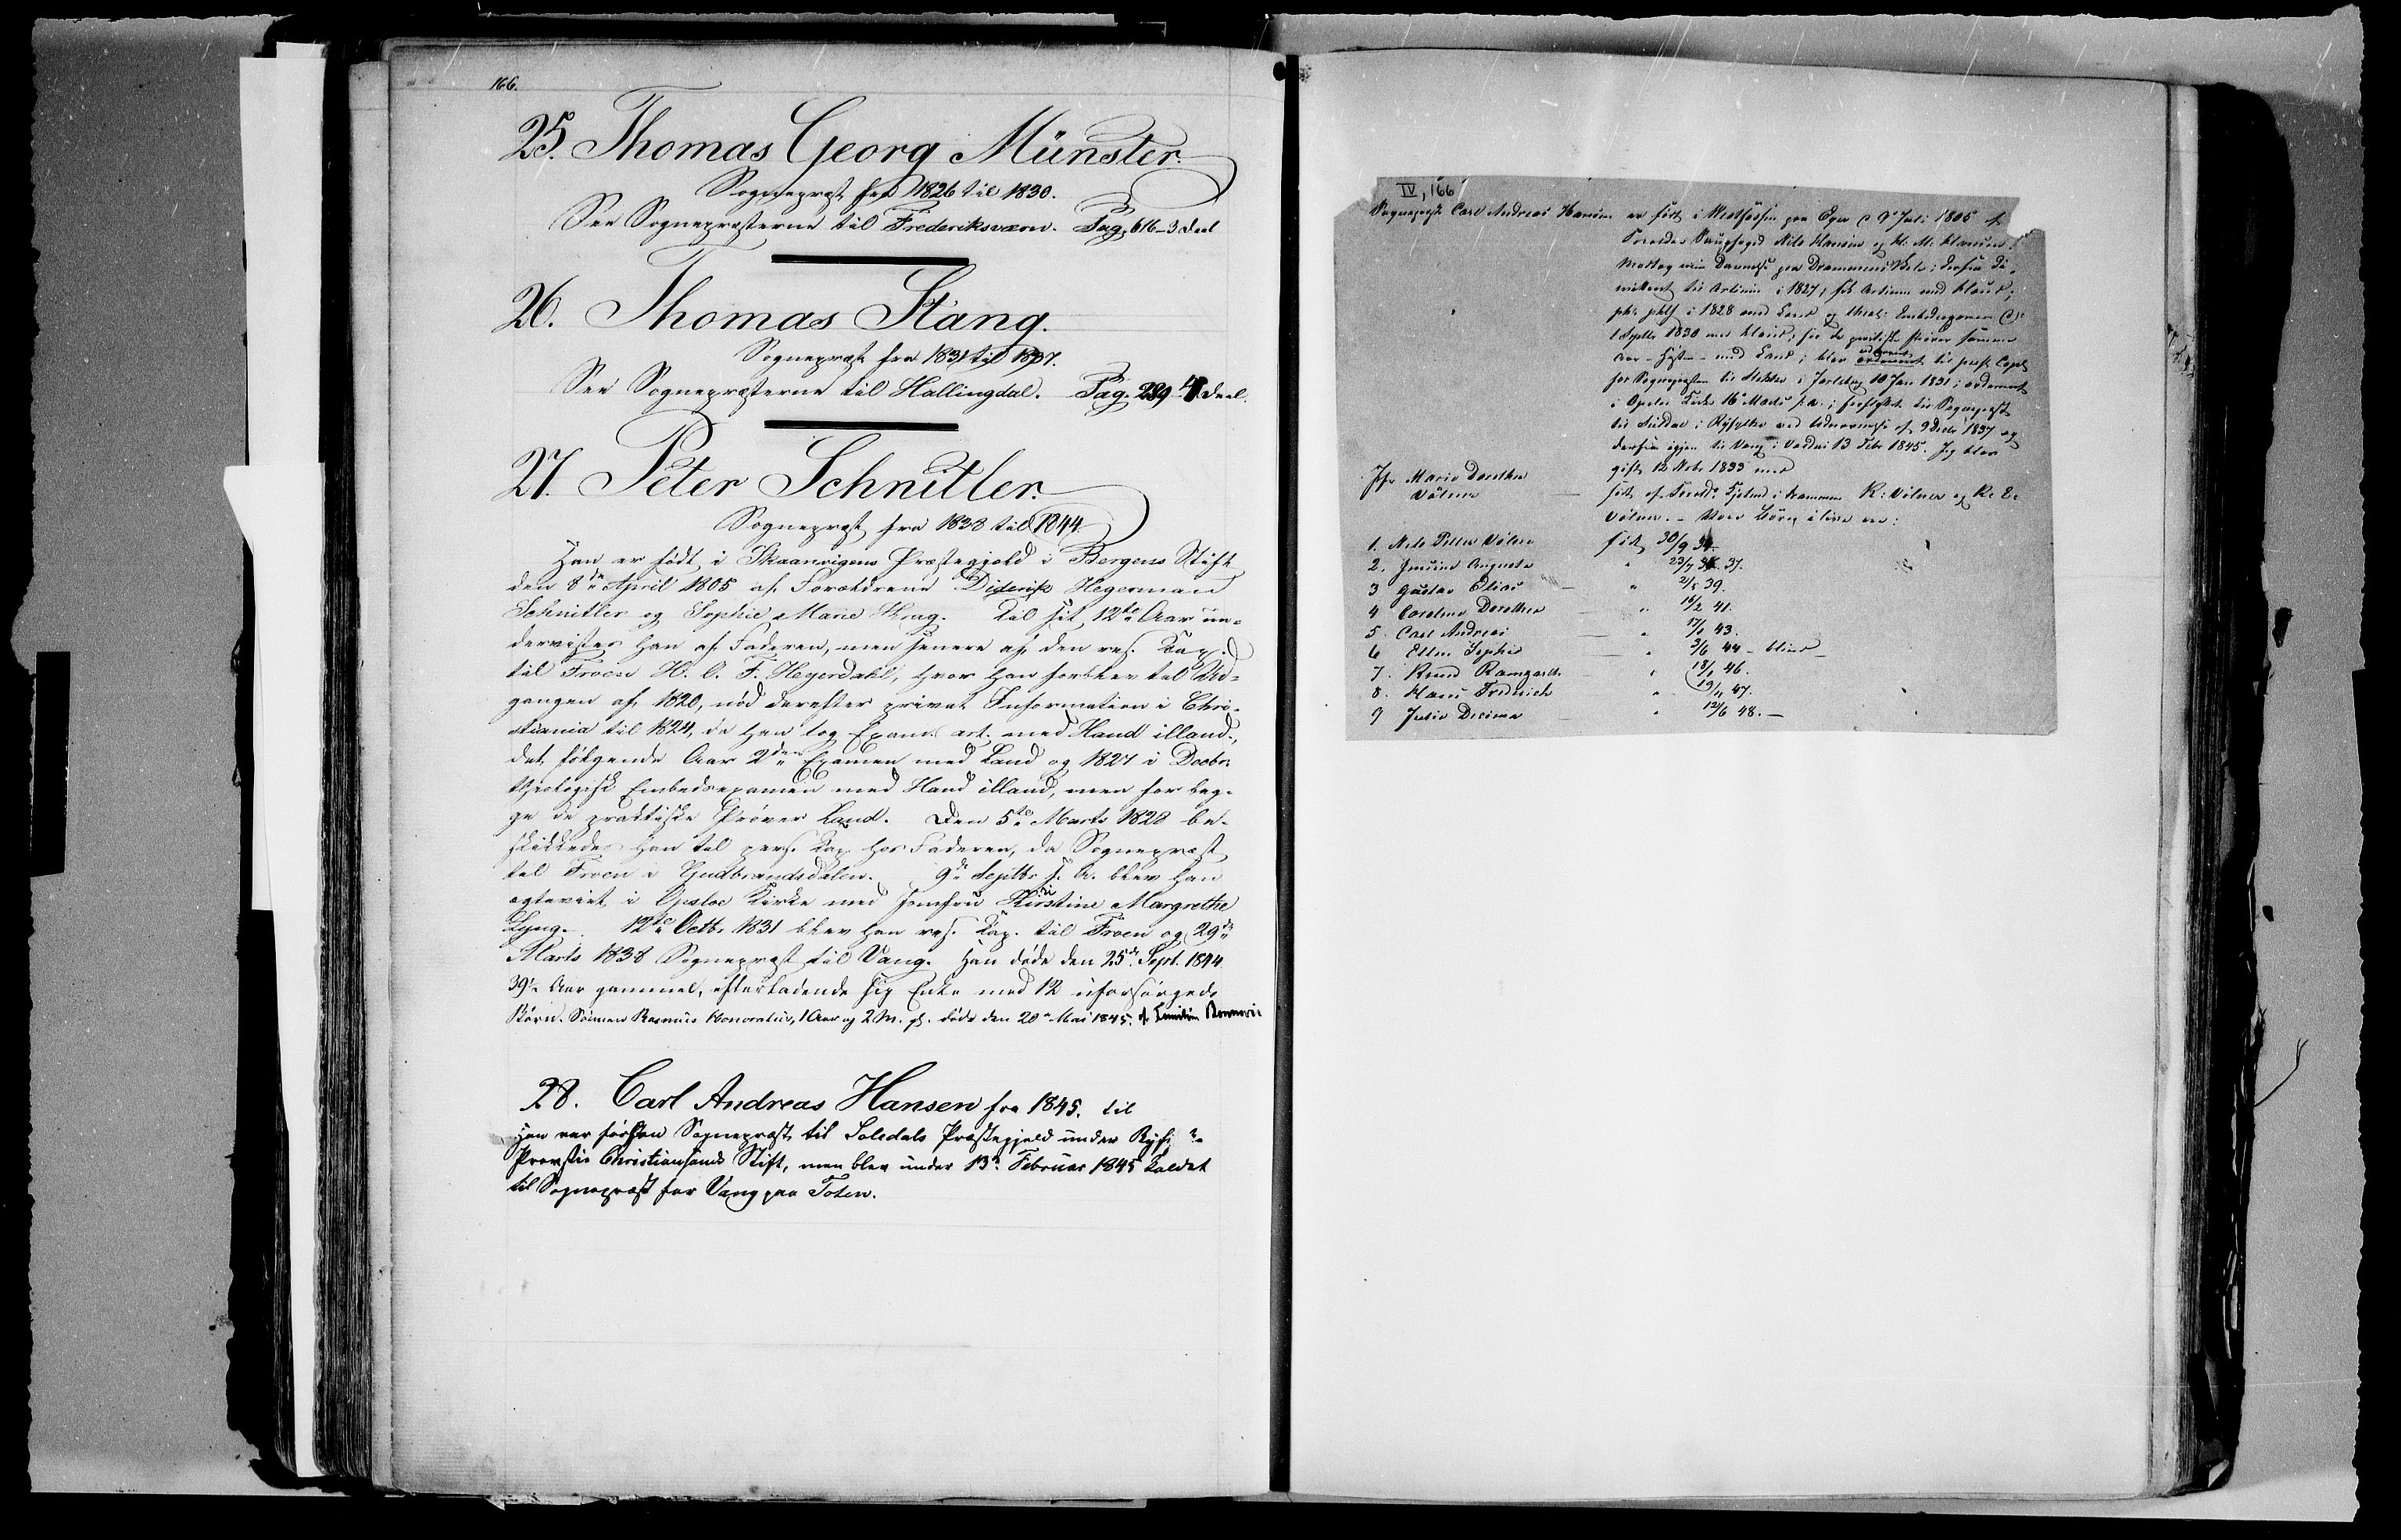 166.
25. Thomas Georg Münster.
Sognepræst fra 1826 til 1830.
See Sognepræsterne til Frederiksværn. Pag. 616-3 Deel
26. Thomas Stang.
Sognepræst fra 1831 til 1837.
See Sognepræsterne til Hallingdal. Pag. 289 4 Deel.
27. Peter Schnitler.
Sognepræst fra 1838 til 1844
Han er født i Skaanevigens Præstegjeld i Bergens Stift
den 8de April 1805 af Forældrene Diderik Hegerman
Schnitler og Sophie Marie Krag. Til sit 12te Aar un-
dervistes han af Faderen, men senere af den res. Kap.
til Froen H. C. F. Heyerdahl, hvor han forblev til Ud-
gangen af 1820, nød derefter privat Information i Chri-
stiania til 1824, da han tog Exam. art. med Haud illaud.,
det følgende Aar 2den Examen med Laud og 1827 i Decbr.
theologisk Embedsexamen med Haud illaud, men for beg-
ge de praktiske Prøver Laud. Den 5te Marts 1828 be-
skikkedes han til pers. Kap. hos Faderen, da Sognepræst
til Froen i Gudbrandsdalen. 9de Septbr s. A. blev han
ægteviet i Opsloe Kirke med Jomfru Kirstine Margrethe
Lyng. 12te Octb. 1831 blev han res. Kap. til Froen og 29de
Marts 1838 Sognepræst til Vang. Han døde den 25de Sept. 1844
39½ Aar gammel, efterladende sig Enke med 12 uforsørgede
Børn. Sønnen Rasmus Honoratus, 1 Aar og 2 M. gl. døde den 20de Mai 1845. af
28. Carl Andreas Hansen fra 1845. til
Han var førhen Sognepræst til Suledals Præstegjeld under
Provstie Christiansands Stift, men blev under 13de Februar 1845 kaldet
til Sognepræst for Vang paa Toten.
IV, 166
Sognepræst Carl Andreas Hansen er født i paa Eger d 9de Juli 1805 af
Forældre Nils Hansen og M. Hansen.
Modtog min Dannelse paa Drammens Skole; derfra di-
mitteret til Artium i 1827, fik Artium med Haud;
phil. i 1828 med Laud og theol. Embedsexamen d.
Septbr 1830 med Haud, for de practiske Prøver samme
Aar - Høst - med Laud; blev udnævnt til pers. Capl.
for Sognepræsten til i Jarlsberg 10 Jan 1831; ordineret
i Opslo Kirke 16 Marts s.A.; forflyttet til Sognepræst
til Suldal i Ryfylke ved Udnævnelse af 9 Decbr 1837 og
derfra igjen til Vang i Valdres 13 Febr 1845. Jeg blev
gift 12 Nvbr 1833 med
Jfr Marie Dorothea
Vølner
født af Forældre i Drammen Vølner og
Vølner. - Vore Børn i live ere:
1. Nils Peter Vølner født 30/9 34
2. Augusta " 23/7 37.
3 Gustav Elias " 2/5 39.
4 Caroline Dorothea " 16/2 41.
5. Carl Andreas " 17/1 43.
6 Ellen Sophie " 3/6 44 - blind
7. Knud " 18/1 46.
8. Hans Fredrich " 19/11 47.
9 Julie Decima " 12/6 48. -